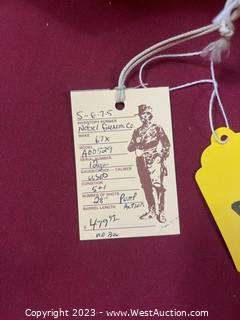 S-6-7-5
INVENTORY NUMBER
Nobel Firearm Co.
MAKE
LTX
MODEL
A00529
SERIAL NUMBER
12ga
GAUGE/CHOKE - CALIBER
USED
CONDITION
5+1
NUMBER OF SHOTS
28" Pump
BARREL LENGTH ACTION
$479.92
NO Box
Copyright 2023 - WestAuction.com